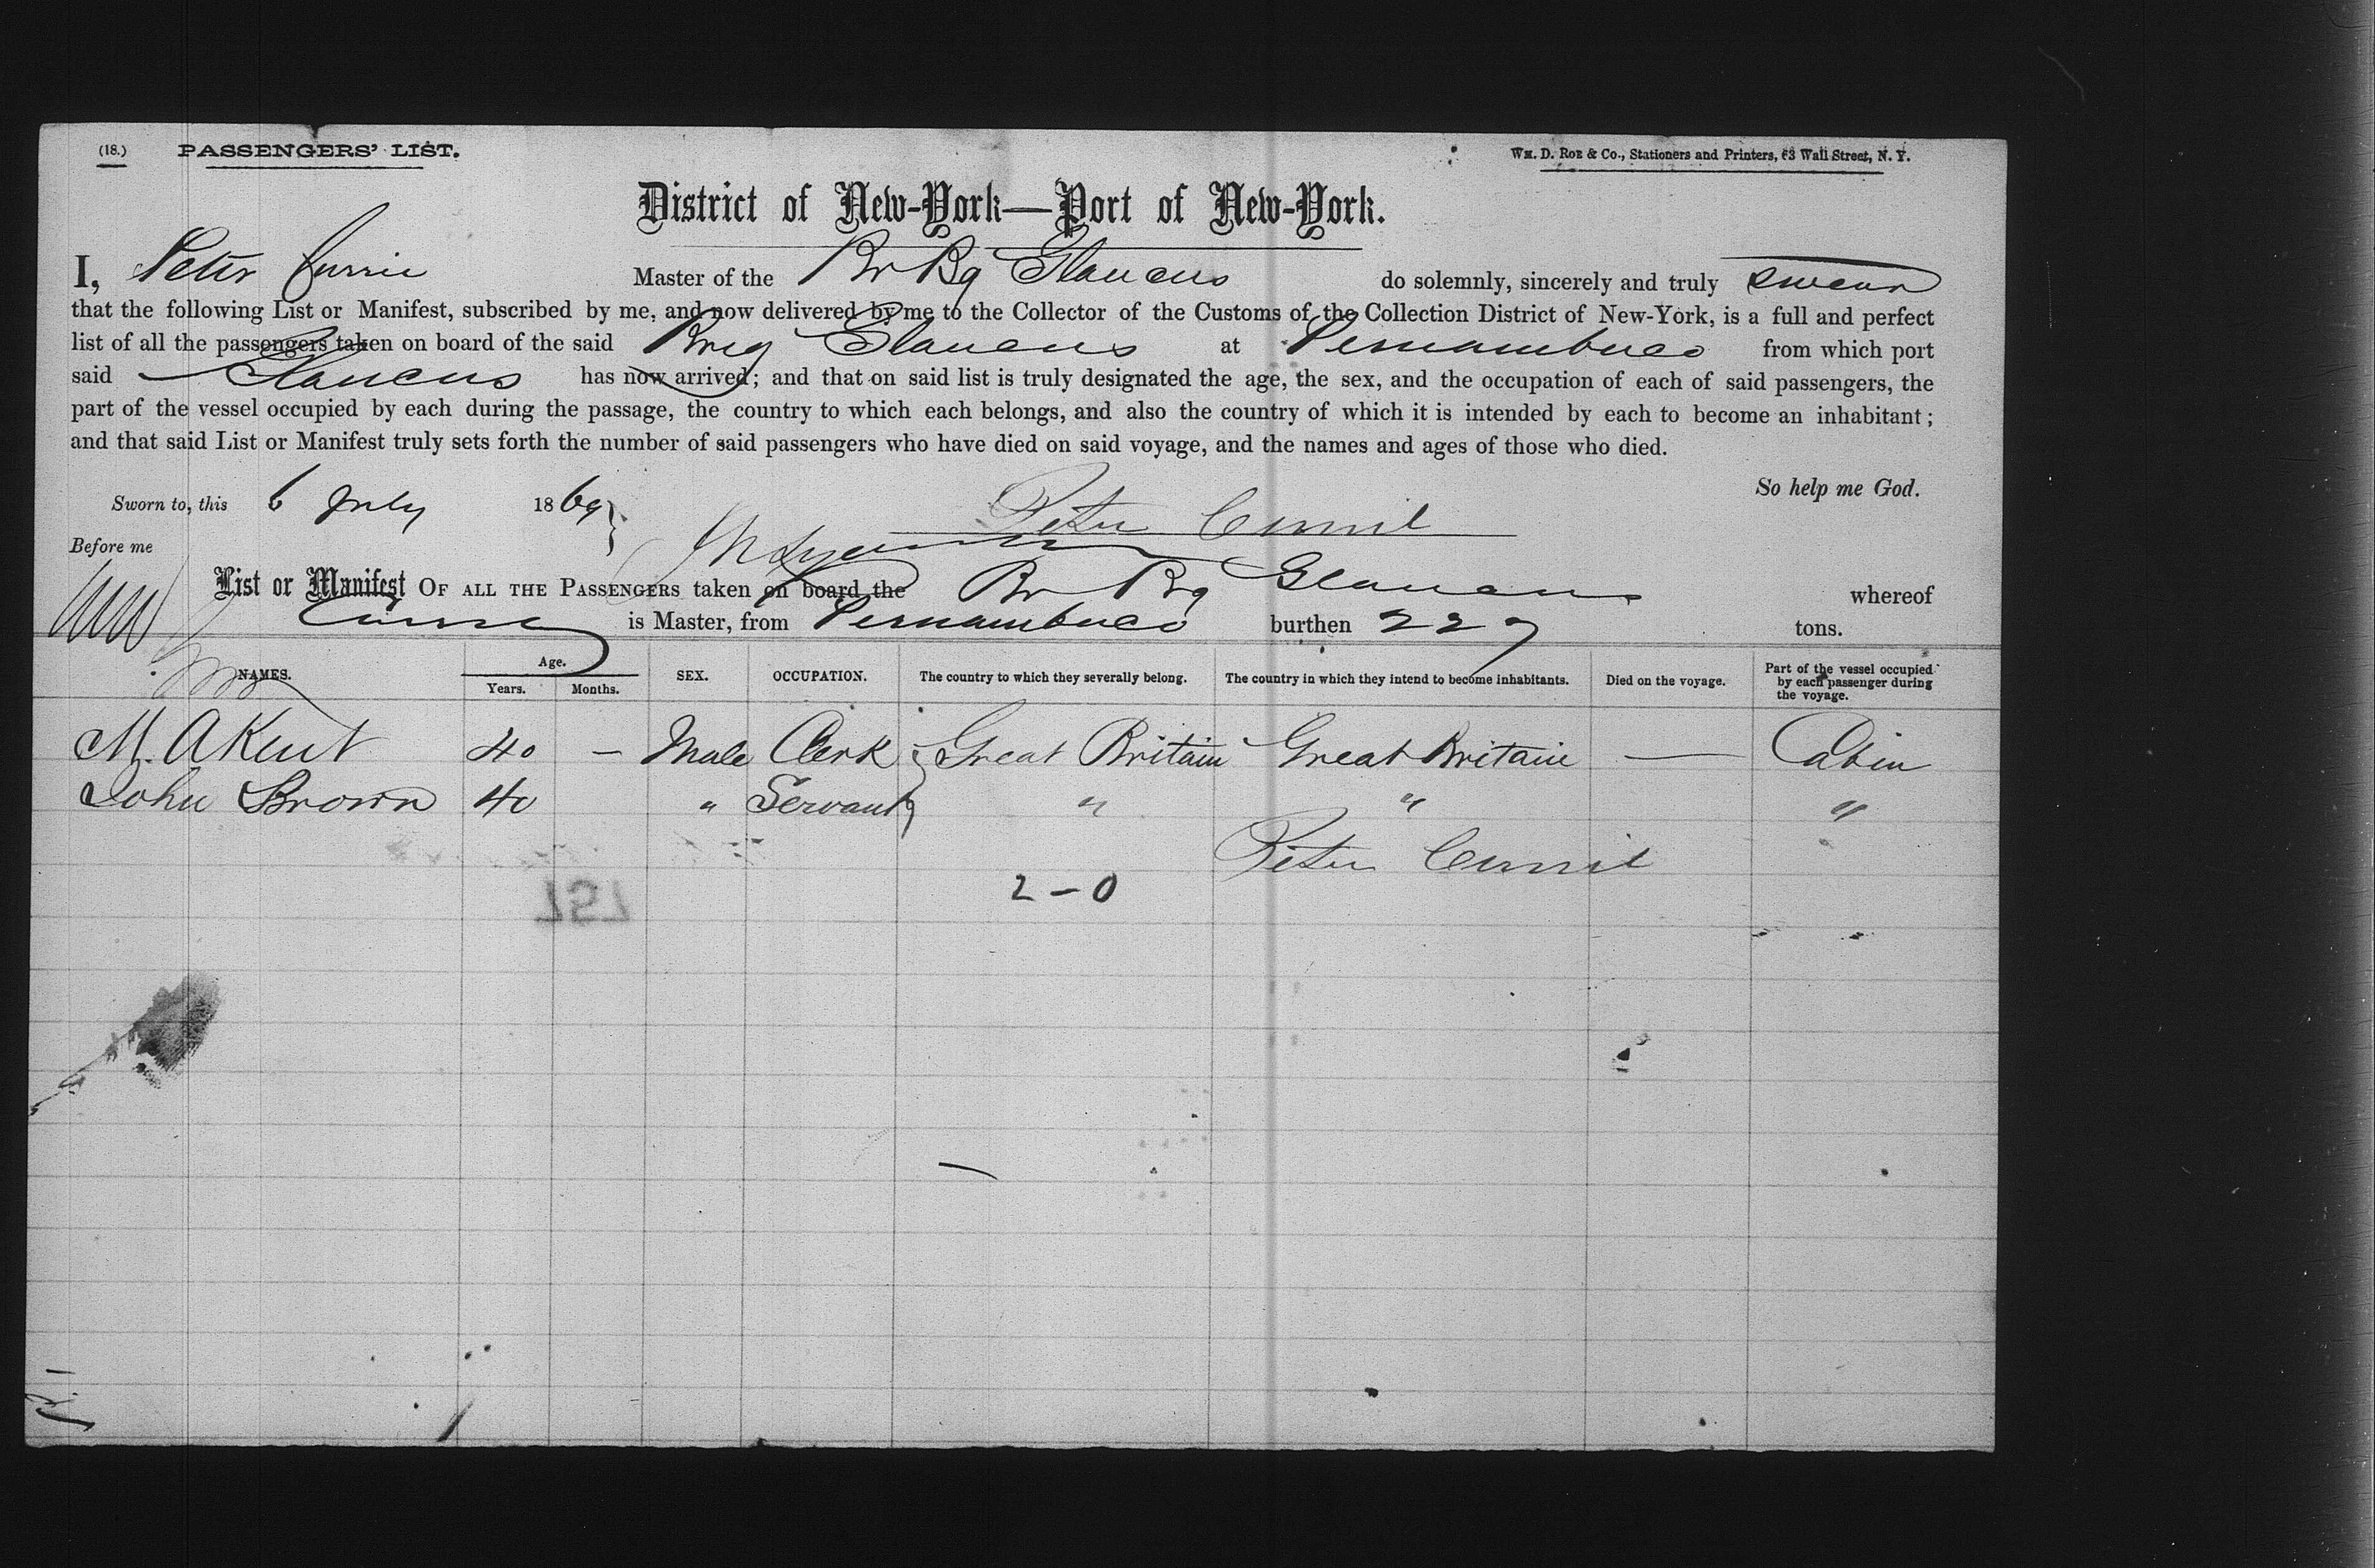 (18.) PASSENGERS' LIST. WM. D. ROE & Co., Stationers and Printers, 63 Wall Street, N. Y.
District of New-York—Port of New-York.
I, Peter Currie Master of the Br Bg Glaucus do solemnly, sincerely and truly swear
that the following List or Manifest, subscribed by me, and now delivered by me to the Collector of the Customs of the Collection District of New-York, is a full and perfect
list of all the passengers taken on board of the said Brig Glaucus at Pernambuco from which port
said Glaucus has now arrived; and that on said list is truly designated the age, the sex, and the occupation of each of said passengers, the
part of the vessel occupied by each during the passage, the country to which each belongs, and also the country of which it is intended by each to become an inhabitant;
and that said List or Manifest truly sets forth the number of said passengers who have died on said voyage, and the names and ages of those who died.
So help me God.
Sworn to, this 6 July 1869 Peter Currie
Before me
List or Manifest OF ALL THE PASSENGERS taken on board the Br Bg Glaucus whereof
Currie is Master, from Pernambuco burthen 227 tons.
NAMES. Age. Years. Months. SEX. OCCUPATION. The country to which they severally belong. The country in which they intend to become inhabitants. Died on the voyage. Part of the vessel occupied by each passenger during the voyage.
M. A Kent 40 — Male Clerk Great Britain Great Britain — Cabin
John Brown 40 " Servant " " "
Peter Currie
2 - 0
757